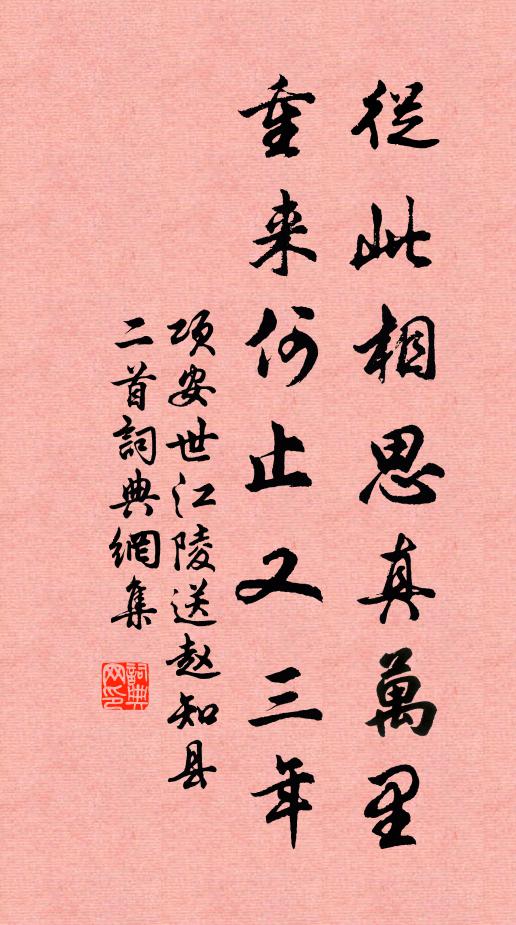 從此相思真萬里
重来何止又三年
项安世江陵送赵知县
二首詞典網集
詞典
网印